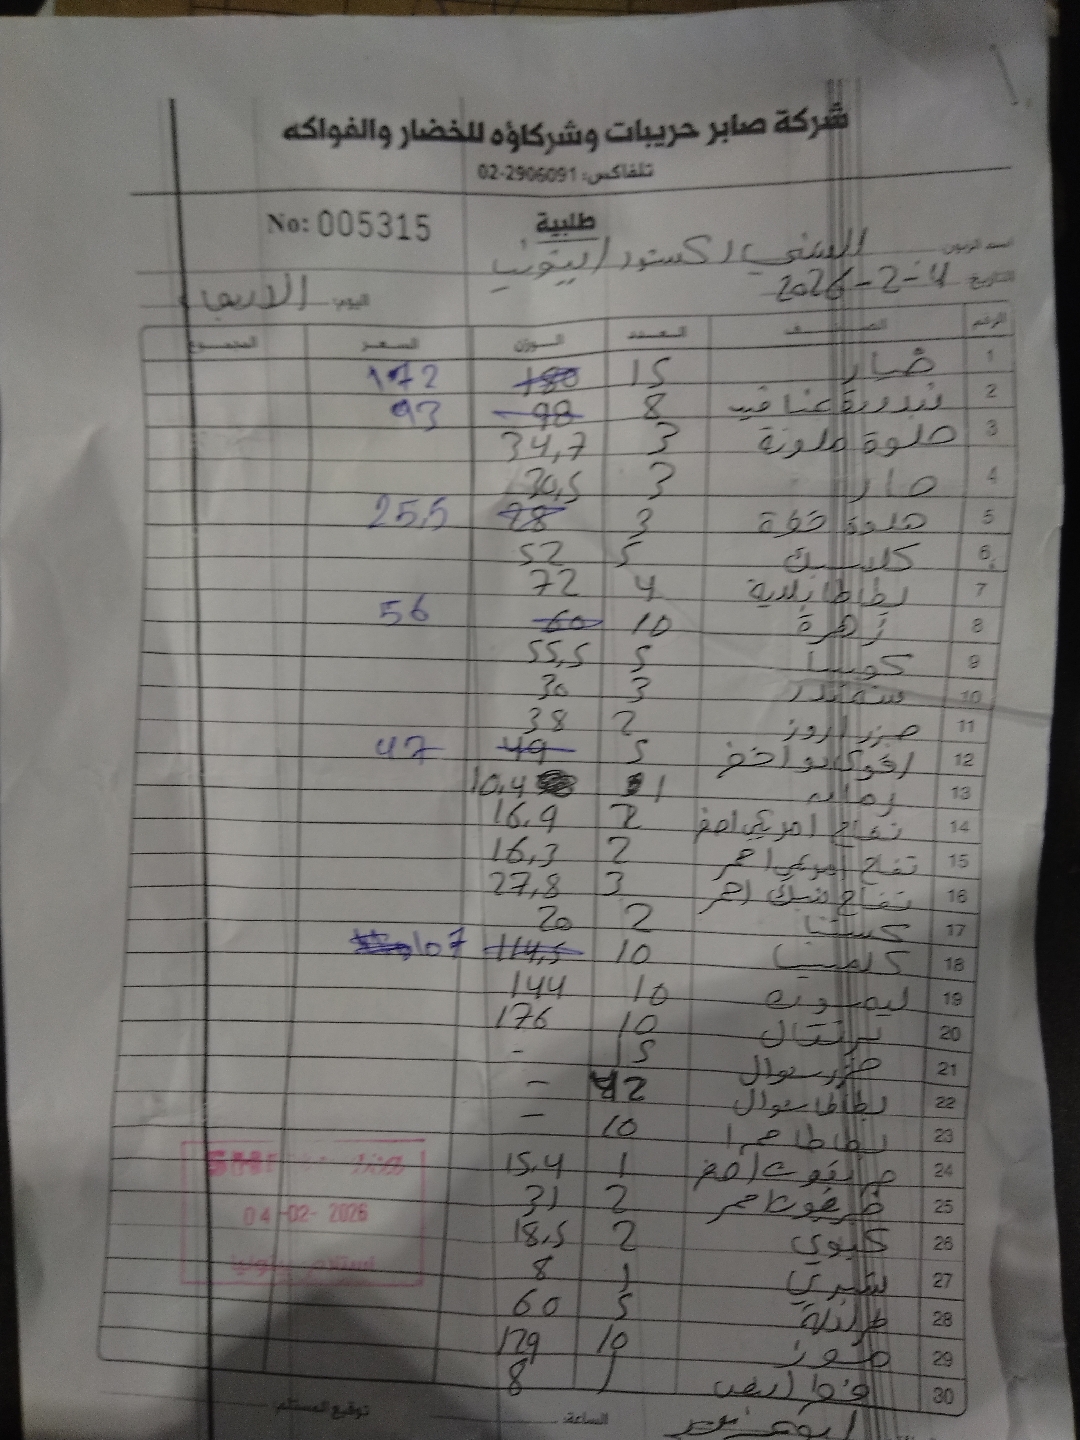 شركة صابر حريبات وشركاؤه للخضار والفواكه
تلفاكس: 02-2906091
طلبية No: 005315
اسم الزبون
التاريخ 2026-2-4 اليوم: الاربعاء
الرقم الصنف العدد الوزن السعر المجموع
1 خيار 15 180 172
2 بندورة عناقيد 8 98 93
3 حلوة ملونة 3 34,7
4 حار 3 30,5
5 حلوة خضرة 3 28 25,5
6 كلاسيك 5 52
7 بطاطا بلدية 4 72
8 زهرة 10 60 56
9 كوسا 5 55,5
10 شمندر 3 30
11 جزر اروز 2 38
12 افوكادو اخضر 5 49 47
13 رمان 1 10,4
14 تفاح امريكي اخضر 2 16,9
15 تفاح امريكي احمر 2 16,3
16 تفاح احمر 3 27,8
17 كستنا 2 20
18 كلمنتينا 10 114,5 107
19 ليمون 10 144
20 برتقال 10 176
21 جزر سوال 15 -
22 بطاطا سوال 42 -
23 بطاطا حمرا 10 -
24 اخضر 1 15,4
25 احمر 2 31
26 كيوي 2 18,5
27 شيري 1 8
28 5 60
29 موز 10 179
30 ابيض 1 8
04-02-2026
الساعة: توقيع المستلم: